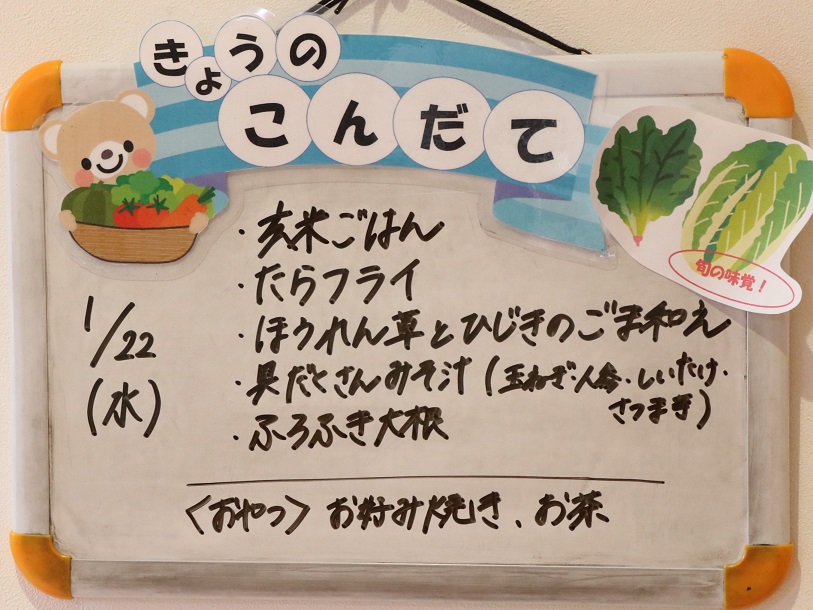 きょうの
こんだて
旬の味覚！
1/22
(水)
・玄米ごはん
・たらフライ
・ほうれん草とひじきのごま和え
・具だくさんみそ汁(玉ねぎ・人参・しいたけ・
さつま芋)
・ふろふき大根
〈おやつ〉お好み焼き、お茶